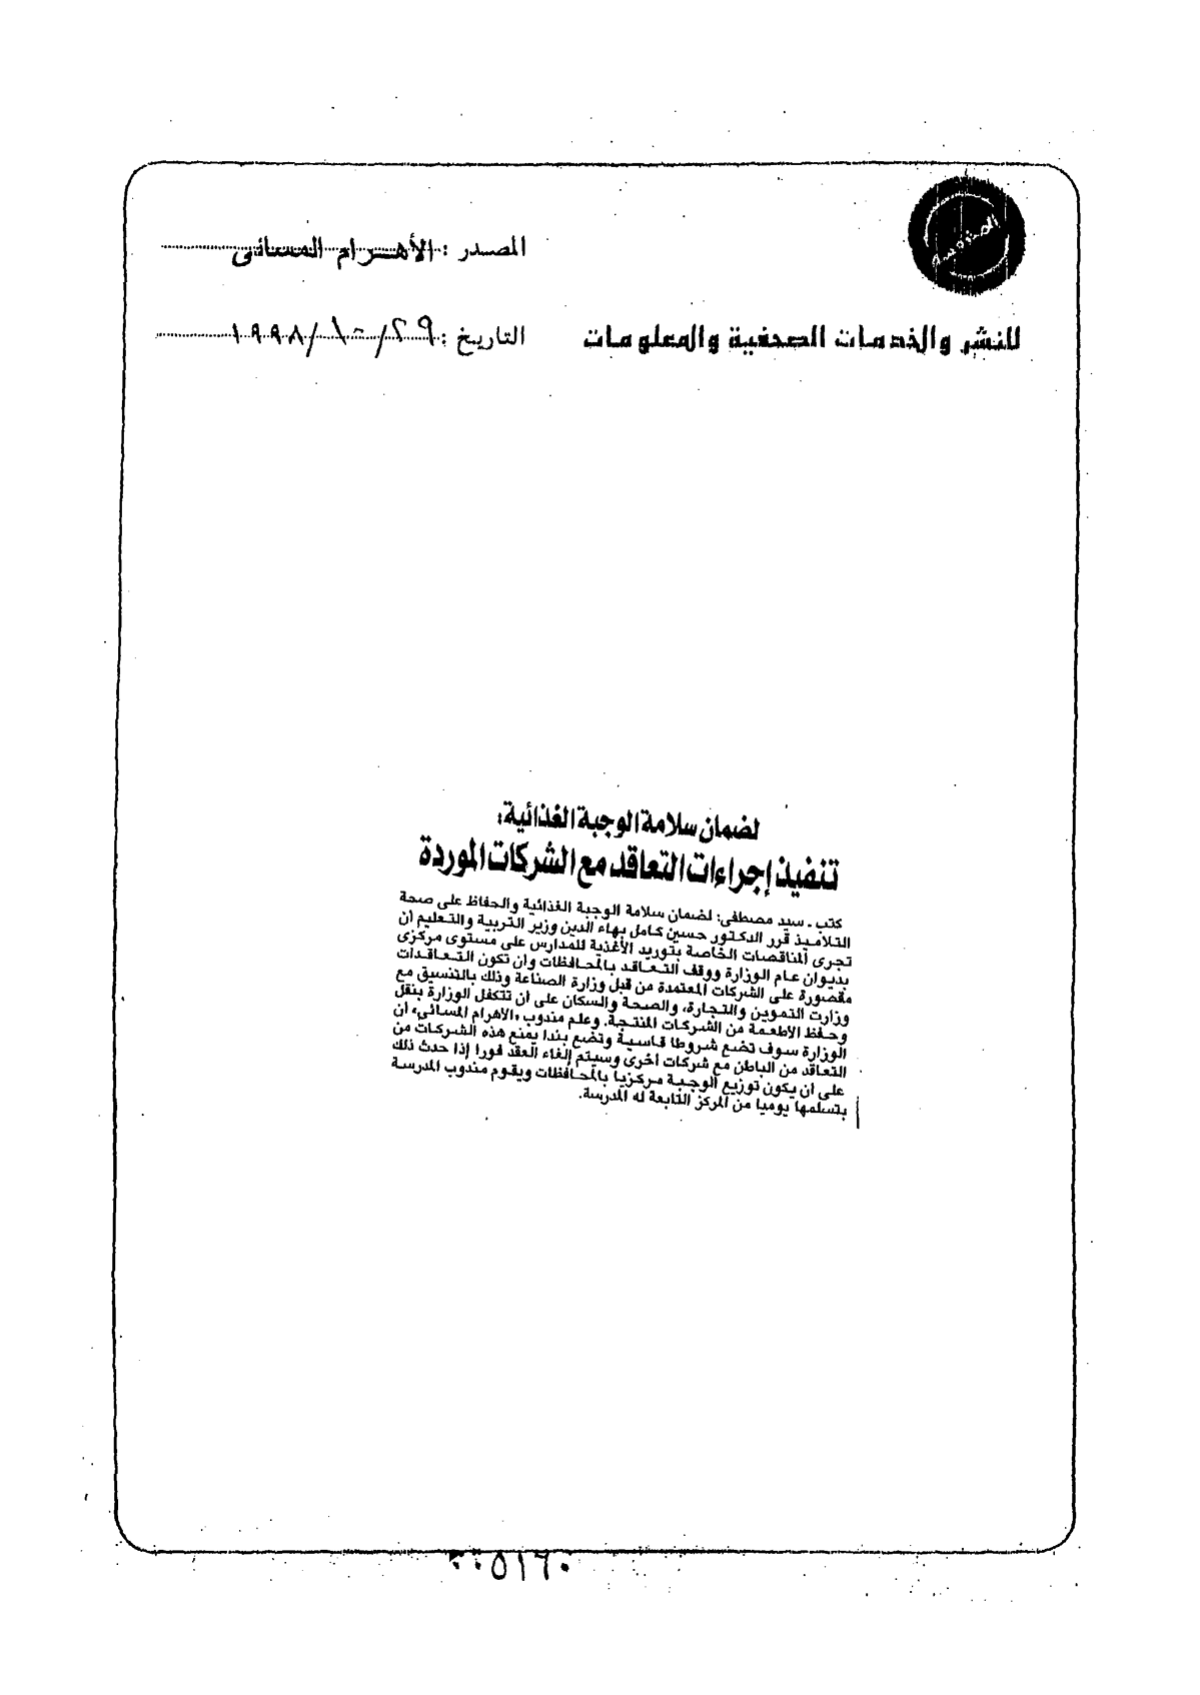 المصدر : الأهرام المسائى
للنشر والخدمات الصحفية والمعلومات
التاريخ : ٢٩/١٠/١٩٩٨
لضمان سلامة الوجبة الغذائية:
تنفيذ إجراءات التعاقد مع الشركات الموردة
كتب ـ سيد مصطفى: لضمان سلامة الوجبة الغذائية والحفاظ على صحة
التلاميذ قرر الدكتور حسين كامل بهاء الدين وزير التربية والتعليم أن
تجرى المناقصات الخاصة بتوريد الأغذية للمدارس على مستوى مركزى
بديوان عام الوزارة ووقف التعاقد بالمحافظات وان تكون التعاقدات
مقصورة على الشركات المعتمدة من قبل وزارة الصناعة وذلك بالتنسيق مع
وزارت التموين والتجارة، والصحة والسكان على ان تتكفل الوزارة بنقل
وحفظ الأطعمة من الشركات المنتجة. وعلم مندوب «الاهرام المسائى» أن
الوزارة سوف تضع شروطا قاسية وتضع بندا يمنع هذه الشركات من
التعاقد من الباطن مع شركات اخرى وسيتم إلغاء العقد فورا إذا حدث ذلك
على ان يكون توزيع الوجبة مركزيا بالمحافظات ويقوم مندوب المدرسة
بتسلمها يوميا من المركز التابعة له المدرسة.